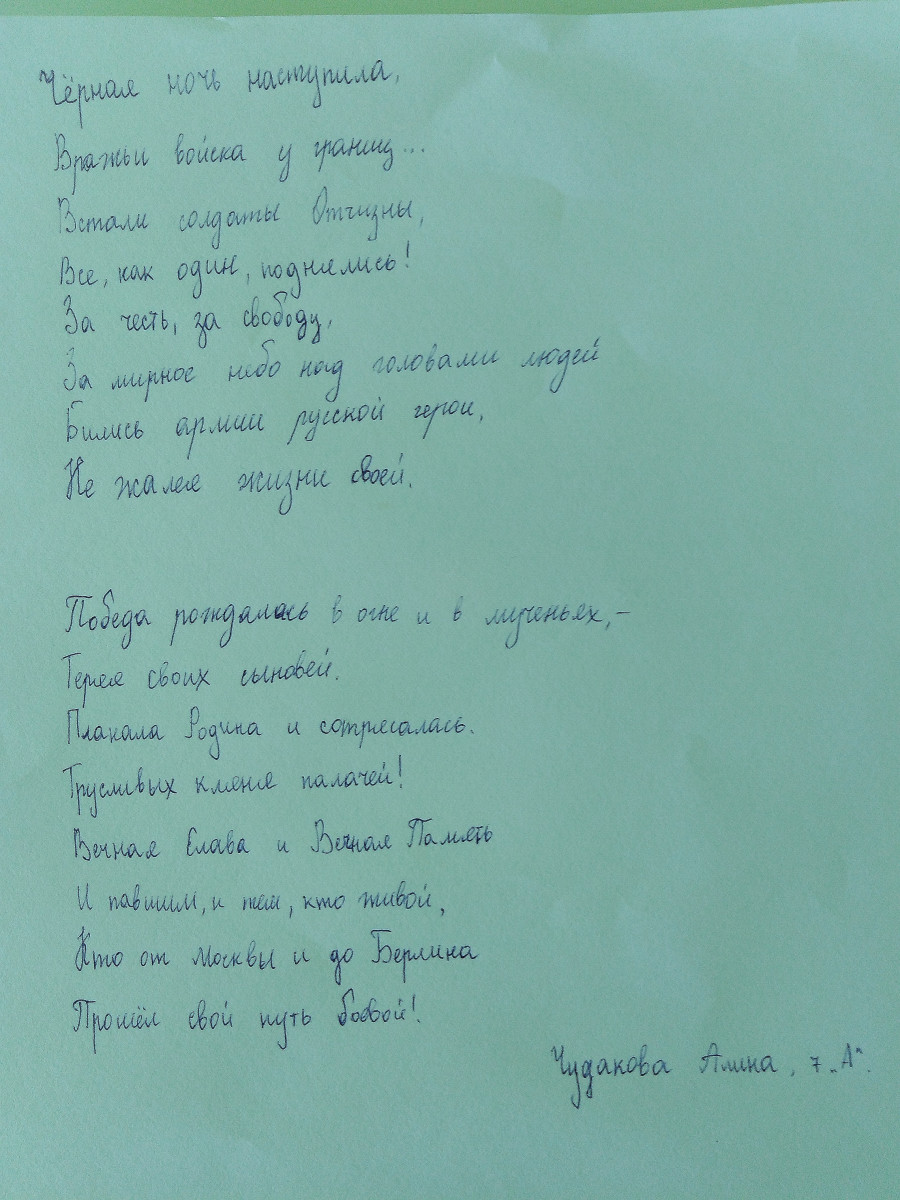 Чёрная ночь наступила,
Вражьи войска у границ...
Встали солдаты Отчизны,
Все, как один, поднялись!
За честь, за свободу,
За мирное небо над головами людей
Бились армии русской герои,
Не жалея жизни своей.
Победа рождалась в огне и в мученьях,-
Теряя своих сыновей.
Плакала Родина и сотрясалась.
Трусливых кляня палачей!
Вечная Слава и Вечная Память
И павшим, и тем, кто живой,
Кто от Москвы и до Берлина
Прошёл свой путь боевой!
Чудакова Алина, 7 „А".